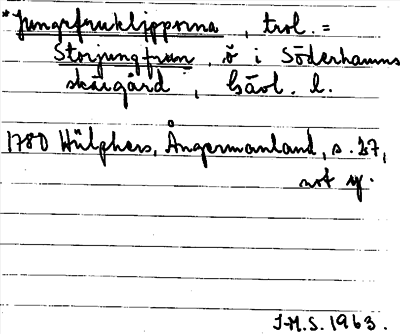 *Jungfruklipporna, trol. =
Storjungfrun, ö i Söderhamns
skärgård, Gävl. l.
1780 Hülphers, Ångermanland, s. 27,
not y.
J.M.S. 1963.